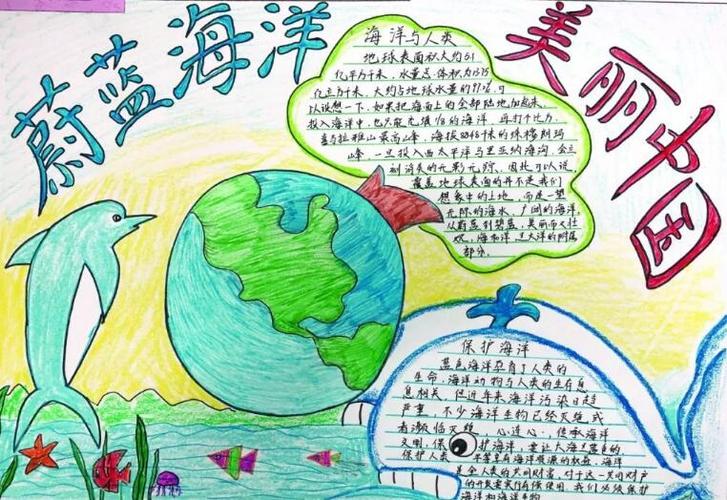 蔚蓝海洋
美丽中国
海洋与人类
地球表面积大约5.1
亿平方千米，水量总体积为13.75
亿立方千米，大约占地球水量的97%，可
以设想一下，如果把海面上的全部陆地加起来
投入海洋中，也只能充填1/8的海洋，再打个比方
喜马拉雅山最高峰，海拔8848米的珠穆朗玛
峰，一旦投入西太平洋马里亚纳海沟，会立
刻消失的无影无踪，因此可以说，
覆盖地球表面的并不是我们
想象中的土地，而是一望
无际的海水，广阔的海洋，
从蔚蓝到碧蓝，美丽而又壮
观，海和洋，大洋的附属
部分。
保护海洋
蓝色海洋孕育了人类的
生命，海洋动物与人类的生存息
息相关，但近年来海洋污染日趋
严重，不少海洋生物已经灭绝或
者濒临灭绝，心连心，传承海洋
文明，保护海洋，要让大海
保护人类
是全人类的共同财富，对于这一共同财产
的开发要实行有偿使用，我们必须保护
海洋和海洋生物